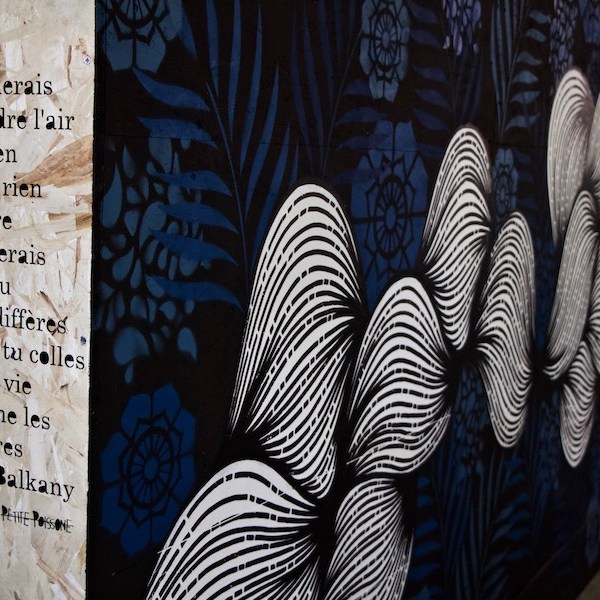 erais
dre l'air
en
rien
re
erais
u
diffères
tu colles
vie
ne les
res
Balkany
Petite Poissone